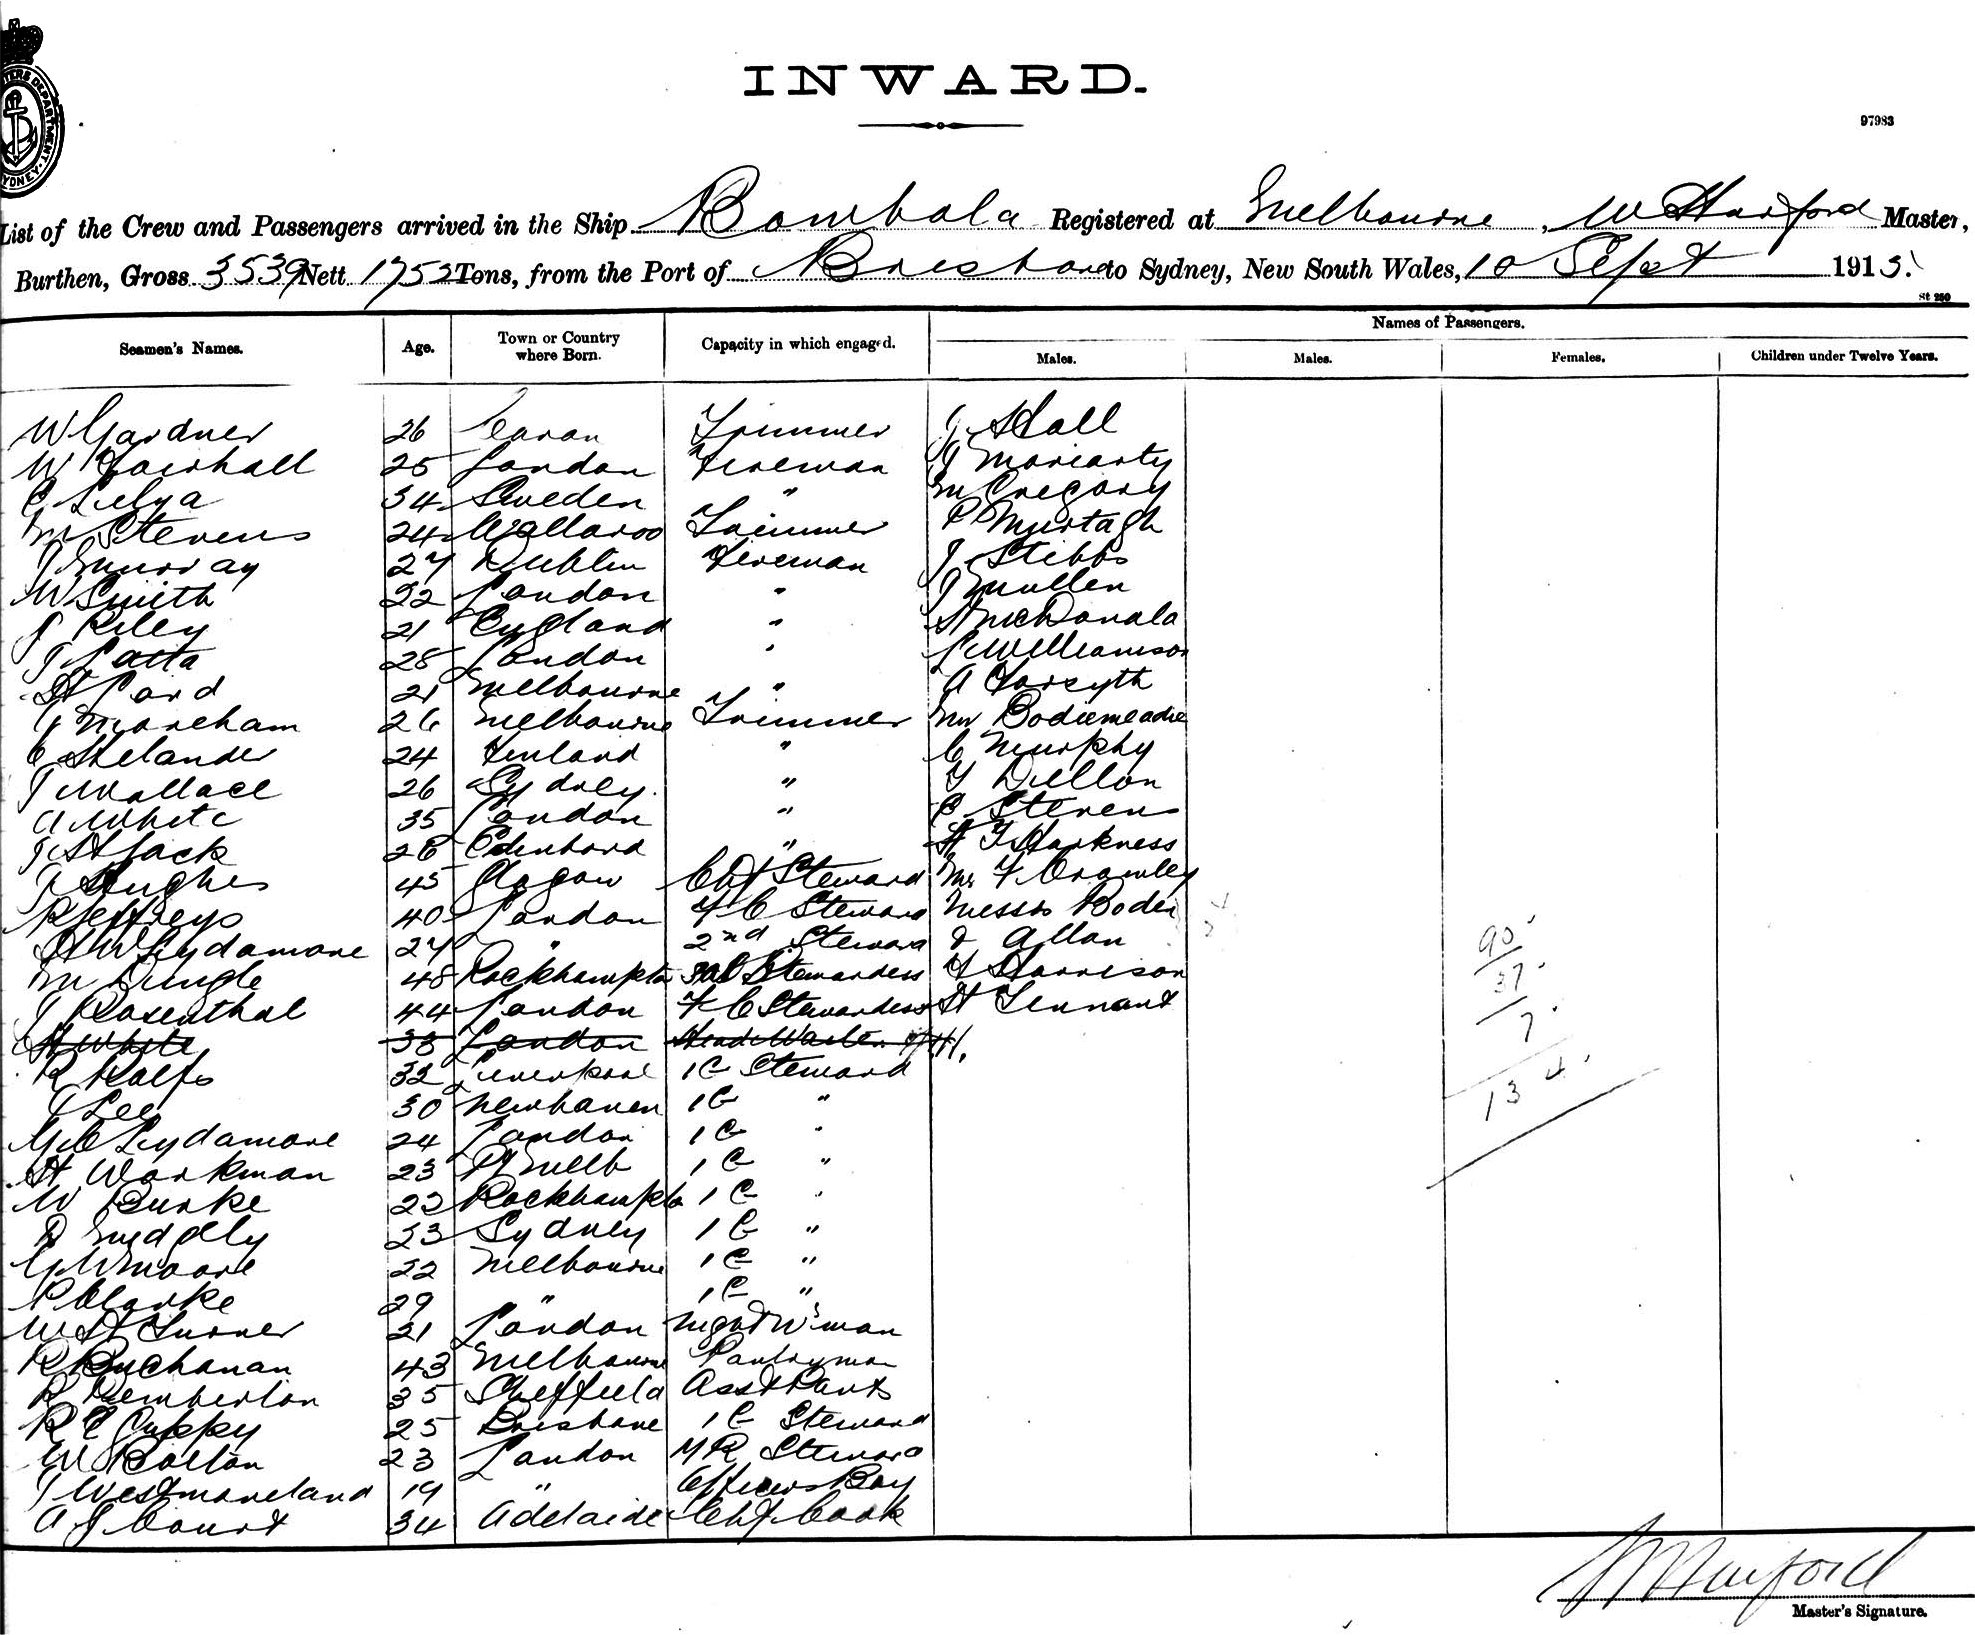 INWARD.
97983
List of the Crew and Passengers arrived in the Ship Bombala Registered at Melbourne, W Hurford Master,
Burthen, Gross 3539 Nett 1752 Tons, from the Port of Brisbane to Sydney, New South Wales, 10 Sept 1915.
St 250
Seamen's Names. Age. Town or Country where Born. Capacity in which engaged. Names of Passengers.
Males. Males. Females. Children under Twelve Years.
W Gardner 26 Trimmer J Hall
W Fairhall 25 London Fireman J Moriarty
C Silva 34 Sweden " M Gregory
M Stevens 24 Wallaroo Trimmer P Murtagh
J Murray 27 Dublin Fireman J Stibbs
W Smith 22 London " J Mullen
J Riley 21 England " H McDonald
J Latta 28 London " L Williamson
H Lord 21 Melbourne " A Forsyth
J Moreham 26 Melbourne Trimmer Mr Bodiemeadie
C Helander 24 Finland " C Murphy
J Wallace 26 Sydney. " J Dillon
A White 35 London " C Stevens
J H Jack 28 " H F Harkness
J Hughes 45 Glasgow Chf Steward Mr F Cromley
R Jeffreys 40 London F C Steward Messrs Boden
H W Sydamore 27 " 2nd Steward & Allan
M Dingle 48 Rockhampton Stewardess F Harrison
J Rosenthal 44 London F C Stewardess H Tennant
H White 38 London Head Waiter
R Rolfs 32 Liverpool 1 C Steward
J Lee 30 Newhaven 1 C "
G C Sydamore 24 London 1 C "
H Workman 23 Pt Melb 1 C "
W Burke 22 Rockhampton 1 C "
D Mudgelly 23 Sydney 1 C "
G W Moore 22 Melbourne 1 C "
P Clarke 29 " 1 C "
W H Turner 21 London Night W'man
R Buchanan 43 Melbourne Pantryman
R Pemberton 35 Sheffield Asst Pant
R E Cuppy 25 Brisbane 1 C Steward
W Bolton 23 London M R Steward
J Westmoreland 19 " Officers Boy
A J Court 34 Adelaide Chf Cook
90
37
7
134
W Hurford
Master's Signature.